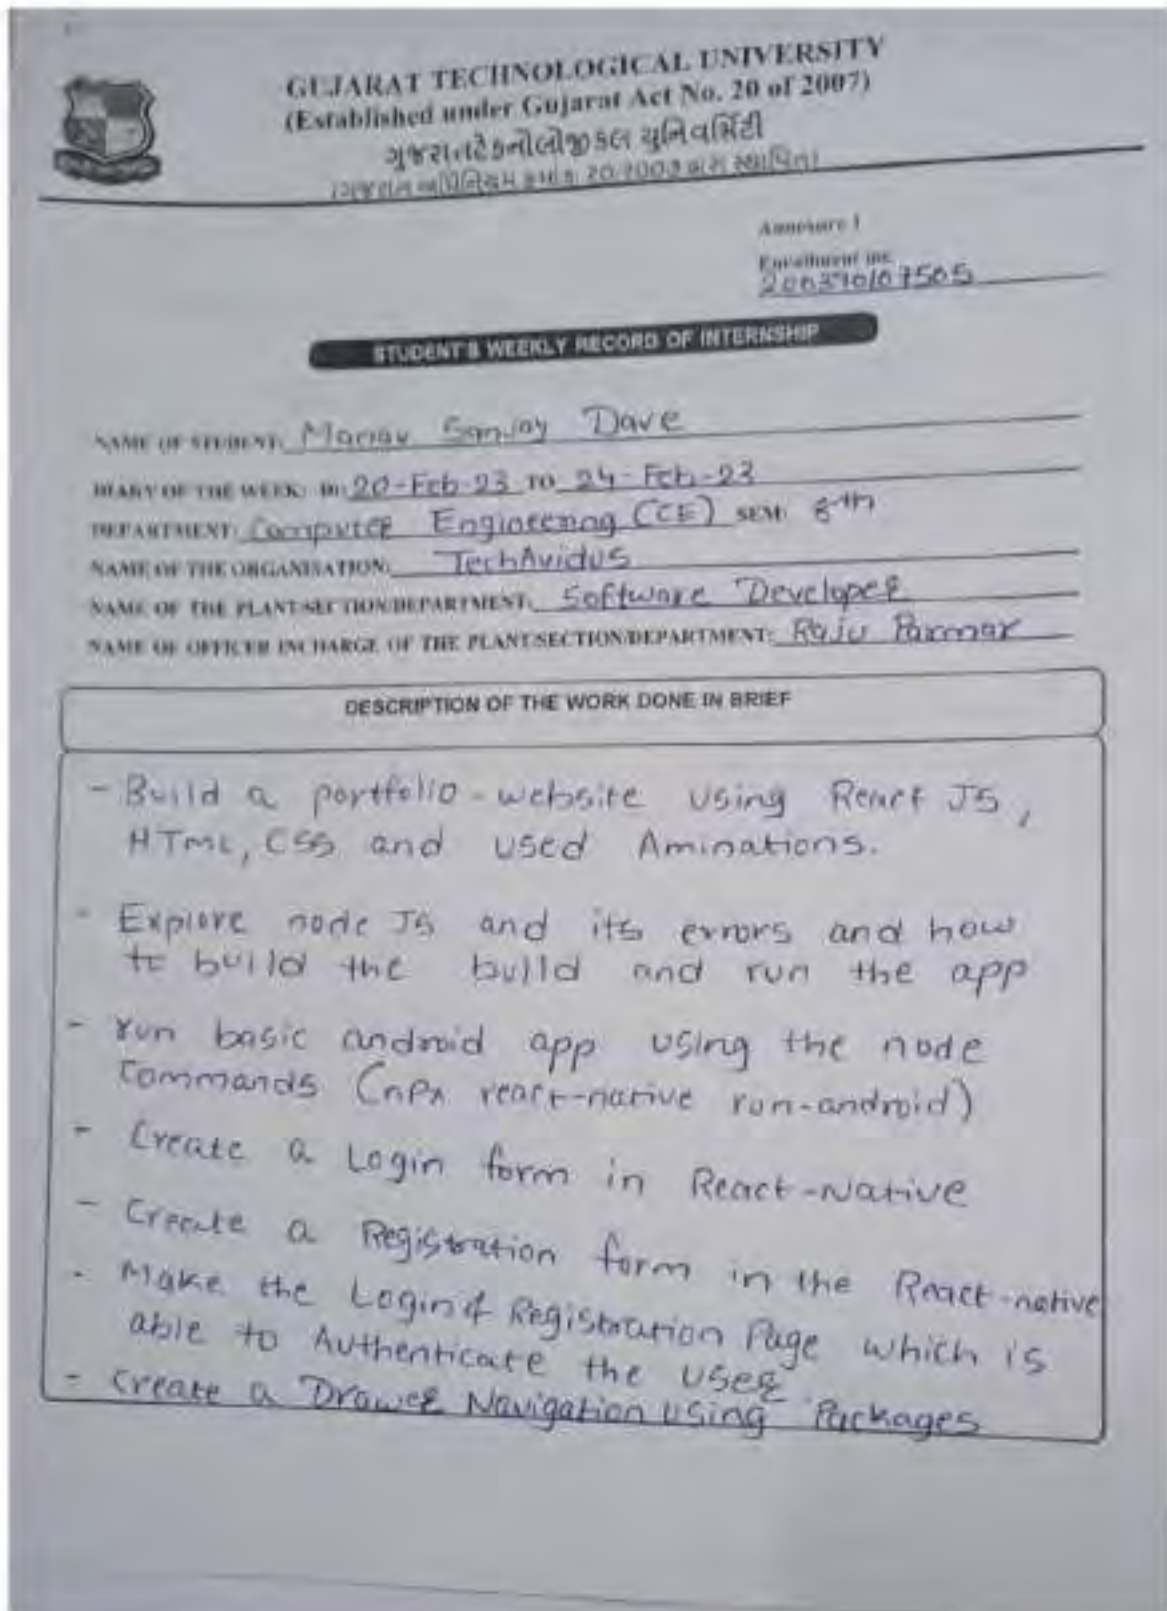 GUJARAT TECHNOLOGICAL UNIVERSITY
(Established under Gujarat Act No. 20 of 2007)
ગુજરાતટેકનોલોજીકલ યુનિવર્સિટી
(ગુજરાત અધિનિયમ ક્રમાંક: ૨૦/૨૦૦૭ દ્વારા સ્થાપિત)
Annexure 1
Enrollment no.
200390107505
STUDENT'S WEEKLY RECORD OF INTERNSHIP
NAME OF STUDENT: Sanjay Dave
DIARY OF THE WEEK: 20-Feb-23 TO 24-Feb-23
DEPARTMENT: Computer Engineering (CE) SEM: 8th
NAME OF THE ORGANISATION: TechAvidus
NAME OF THE PLANT/SECTION/DEPARTMENT: Software Developer
NAME OF OFFICER INCHARGE OF THE PLANT/SECTION/DEPARTMENT: Raju Parmar
DESCRIPTION OF THE WORK DONE IN BRIEF
- Build a portfolio-website using React JS,
HTML, CSS and used Aminations.
- Explore node JS and its errors and how
to build the build and run the app
- run basic android app using the node
Commands (npx react-native run-android)
- Create a Login form in React-Native
- Create a Registration form in the React-native
- Make the Login & Registration Page which is
able to Authenticate the user
- create a Drawer Navigation using Packages